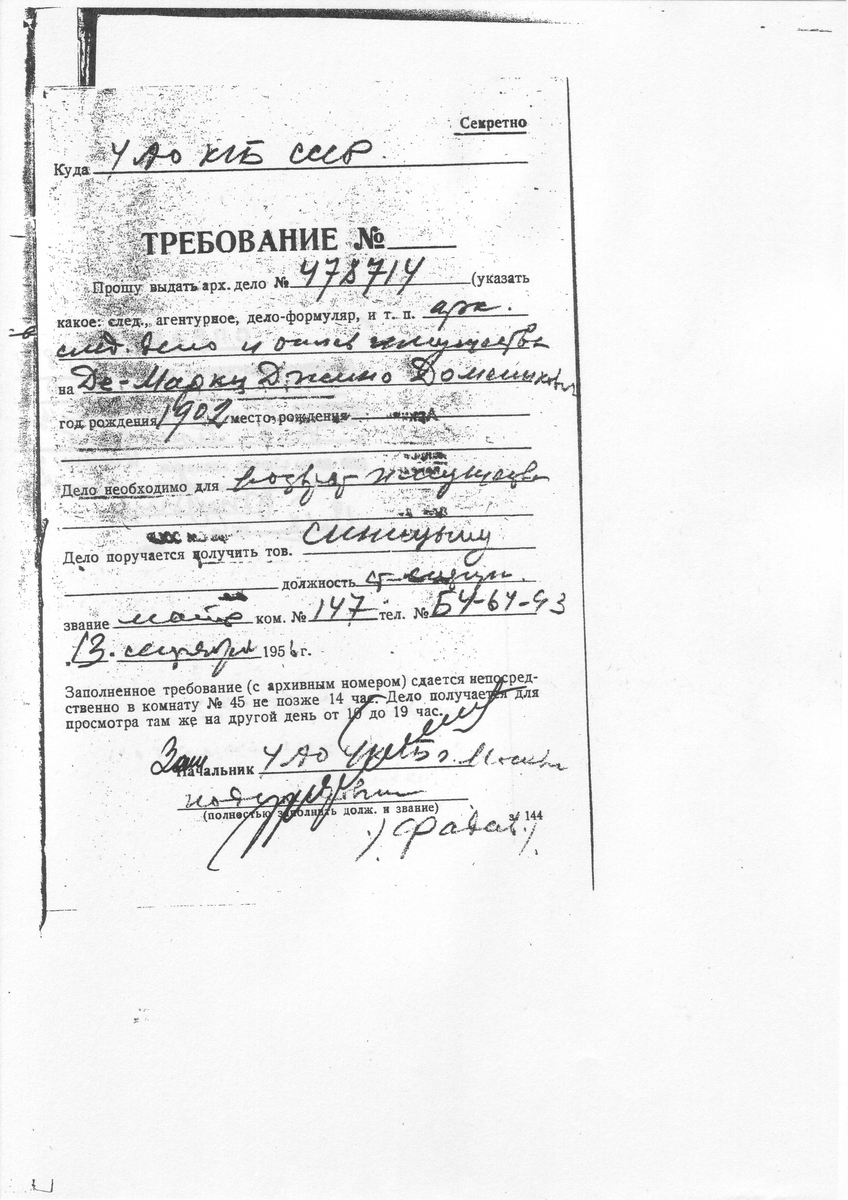 Секретно
Куда УАО КГБ СССР
ТРЕБОВАНИЕ №
Прошу выдать арх. дело № 478714 (указать
какое: след., агентурное, дело-формуляр, и т. п. арх.
след. дело и опись имущества
на Де-Марки Джино Доменикович
год рождения 1902 место рождения
Дело необходимо для возврат имущества
Дело поручается получить тов. Синицыну
должность
звание майор ком. № 147 тел. № Б4-64-93
13. сентября 1956 г.
Заполненное требование (с архивным номером) сдается непосред-
ственно в комнату № 45 не позже 14 час. Дело получается для
просмотра там же на другой день от 10 до 19 час.
Зам
Начальник УАО УКГБ г. Москвы
(полностью заполнить долж. и звание)
з. 144